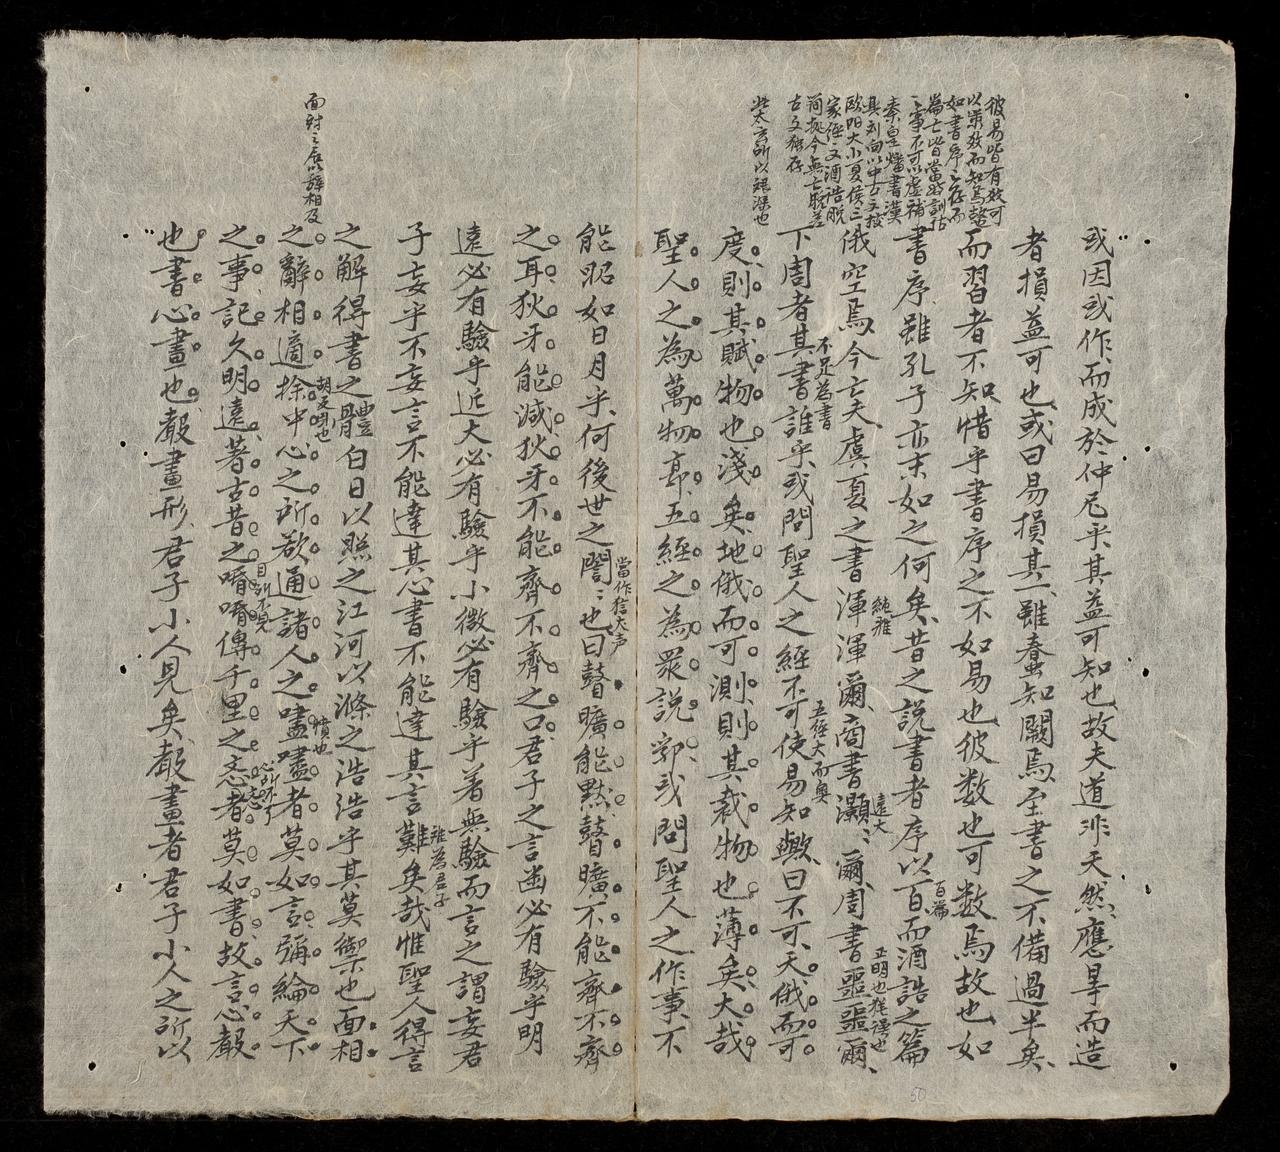 或因或作而成於仲尼乎其益可知也故夫道非天然應旹而造
者損益可也或曰易損其一雖惷知闕焉至書之不備過半矣
而習者不知惜乎書序之不如易也彼数也可数焉故也如
書序雖孔子亦末如之何矣昔之說書者序以百而酒誥之篇
俄空焉今亡夫虞夏之書渾渾爾商書灝灝爾周書噩噩爾
下周者其書誰乎或問聖人之經不可使易知歟曰不可天俄而可
度則其賦物也淺矣地俄而可測則其裁物也薄矣大哉
聖人之為萬物郭五經之為衆說郛或問聖人之作事不
能昭如日月乎何後世之誾誾也曰瞽曠能默瞽曠不能齊不齊
之耳狄牙能減狄牙不能齊不齊之口君子之言幽必有驗乎明
遠必有驗乎近大必有驗乎小微必有驗乎著無驗而言之謂妄君
子妄乎不妄言不能達其心書不能達其言難矣哉惟聖人得言
之解得書之體白日以照之江河以滌之浩浩乎其莫禦也面相
之辭相適捈中心之所欲通諸人之嚍嚍者莫如言彌綸天下
之事記久明遠著古昔之㖧㖧傳千里之忞者莫如書故言心聲
也書心畫也聲畫形君子小人見矣聲畫者君子小人之所以
彼易皆有数可
以策数而知焉
如書序之存而
篇亡皆當訓詁
事不可以虛補
秦皇燔書漢
其劉向以中古文校
歐陽大小夏侯三
家經文酒誥脫
簡今無亡脫
古文猶存
此太玄所以艱深也
面對之居以辭相及
百篇
純雅
遠大
正明也
不足為書
五經大而奥
當作狺犬声
雖為君子
憤也
目所不見
心所不了